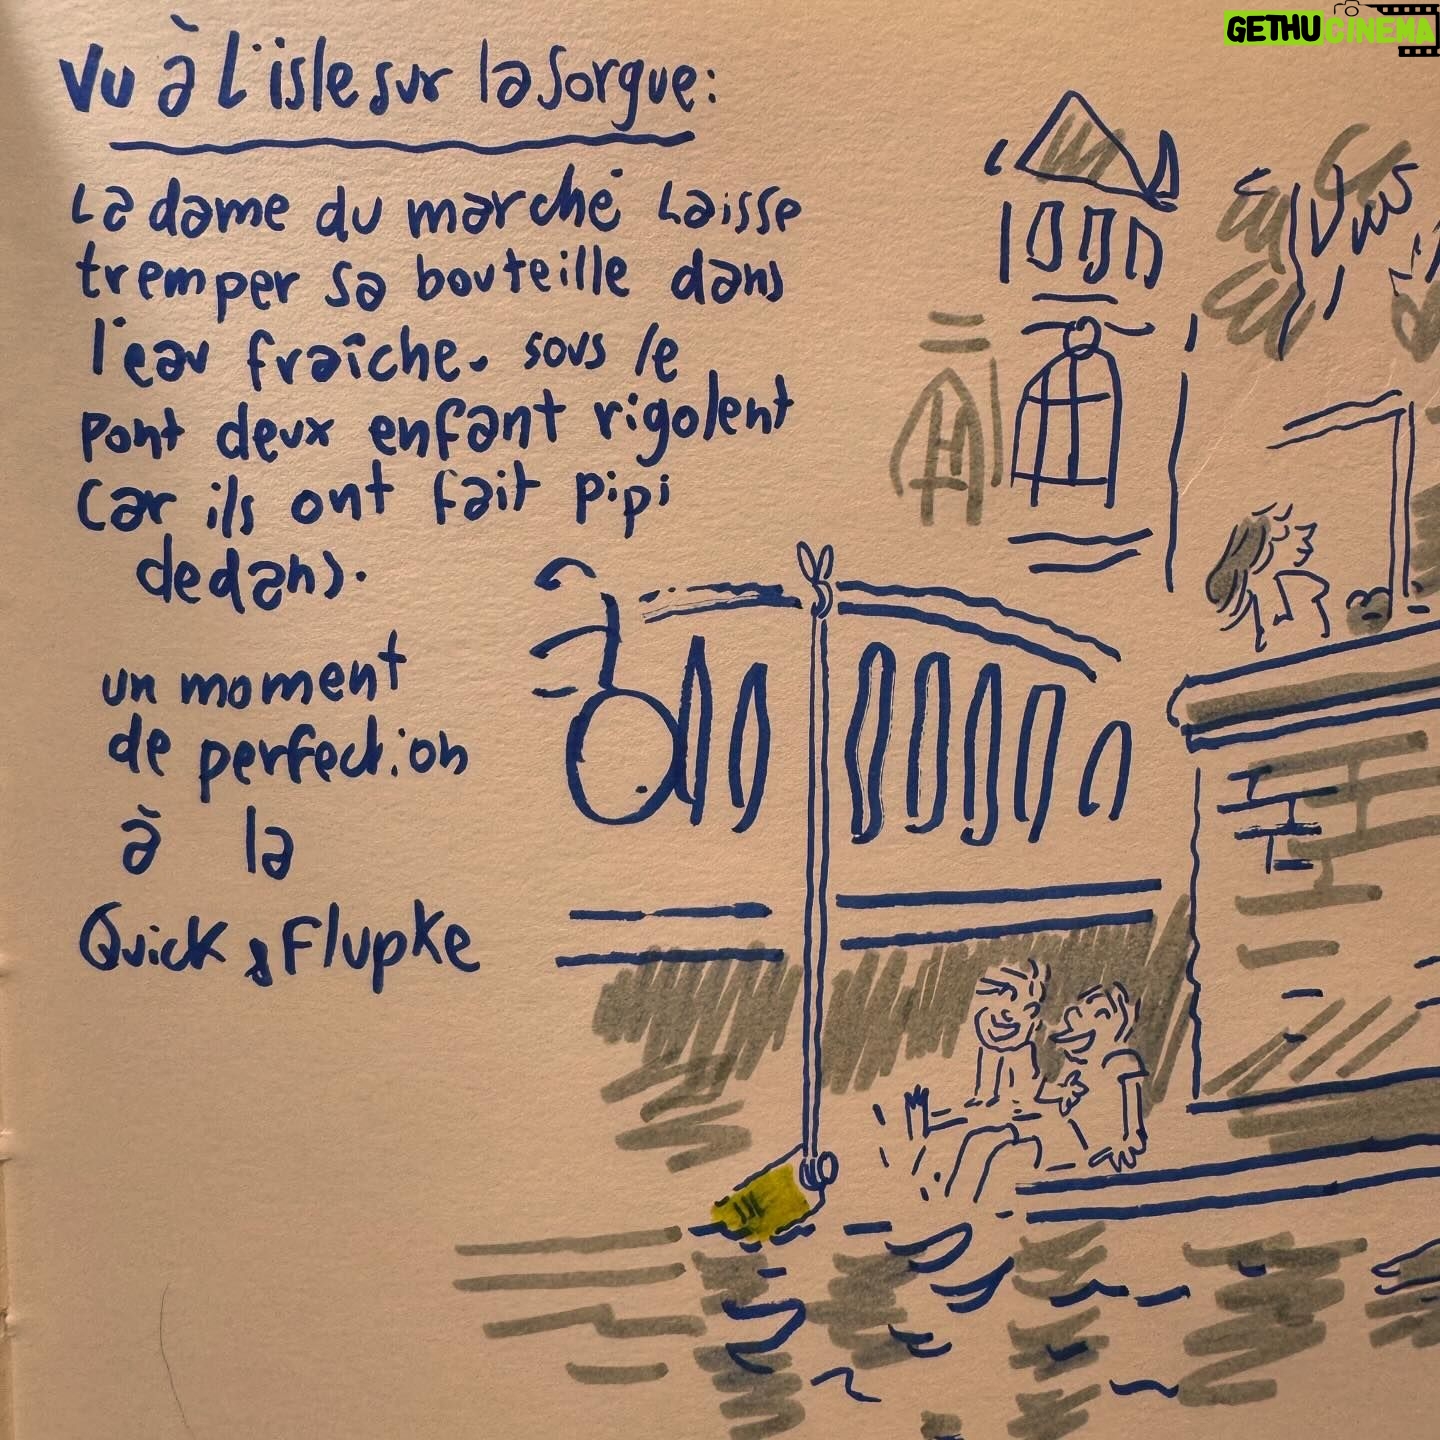 GETHU CINEMA
Vu à L'isle sur la Sorgue:
La dame du marché Laisse
tremper sa bouteille dans
l'eau fraîche. sous le
pont deux enfant rigolent
car ils ont fait pipi
dedans.
un moment
de perfection
à la
Quick & Flupke